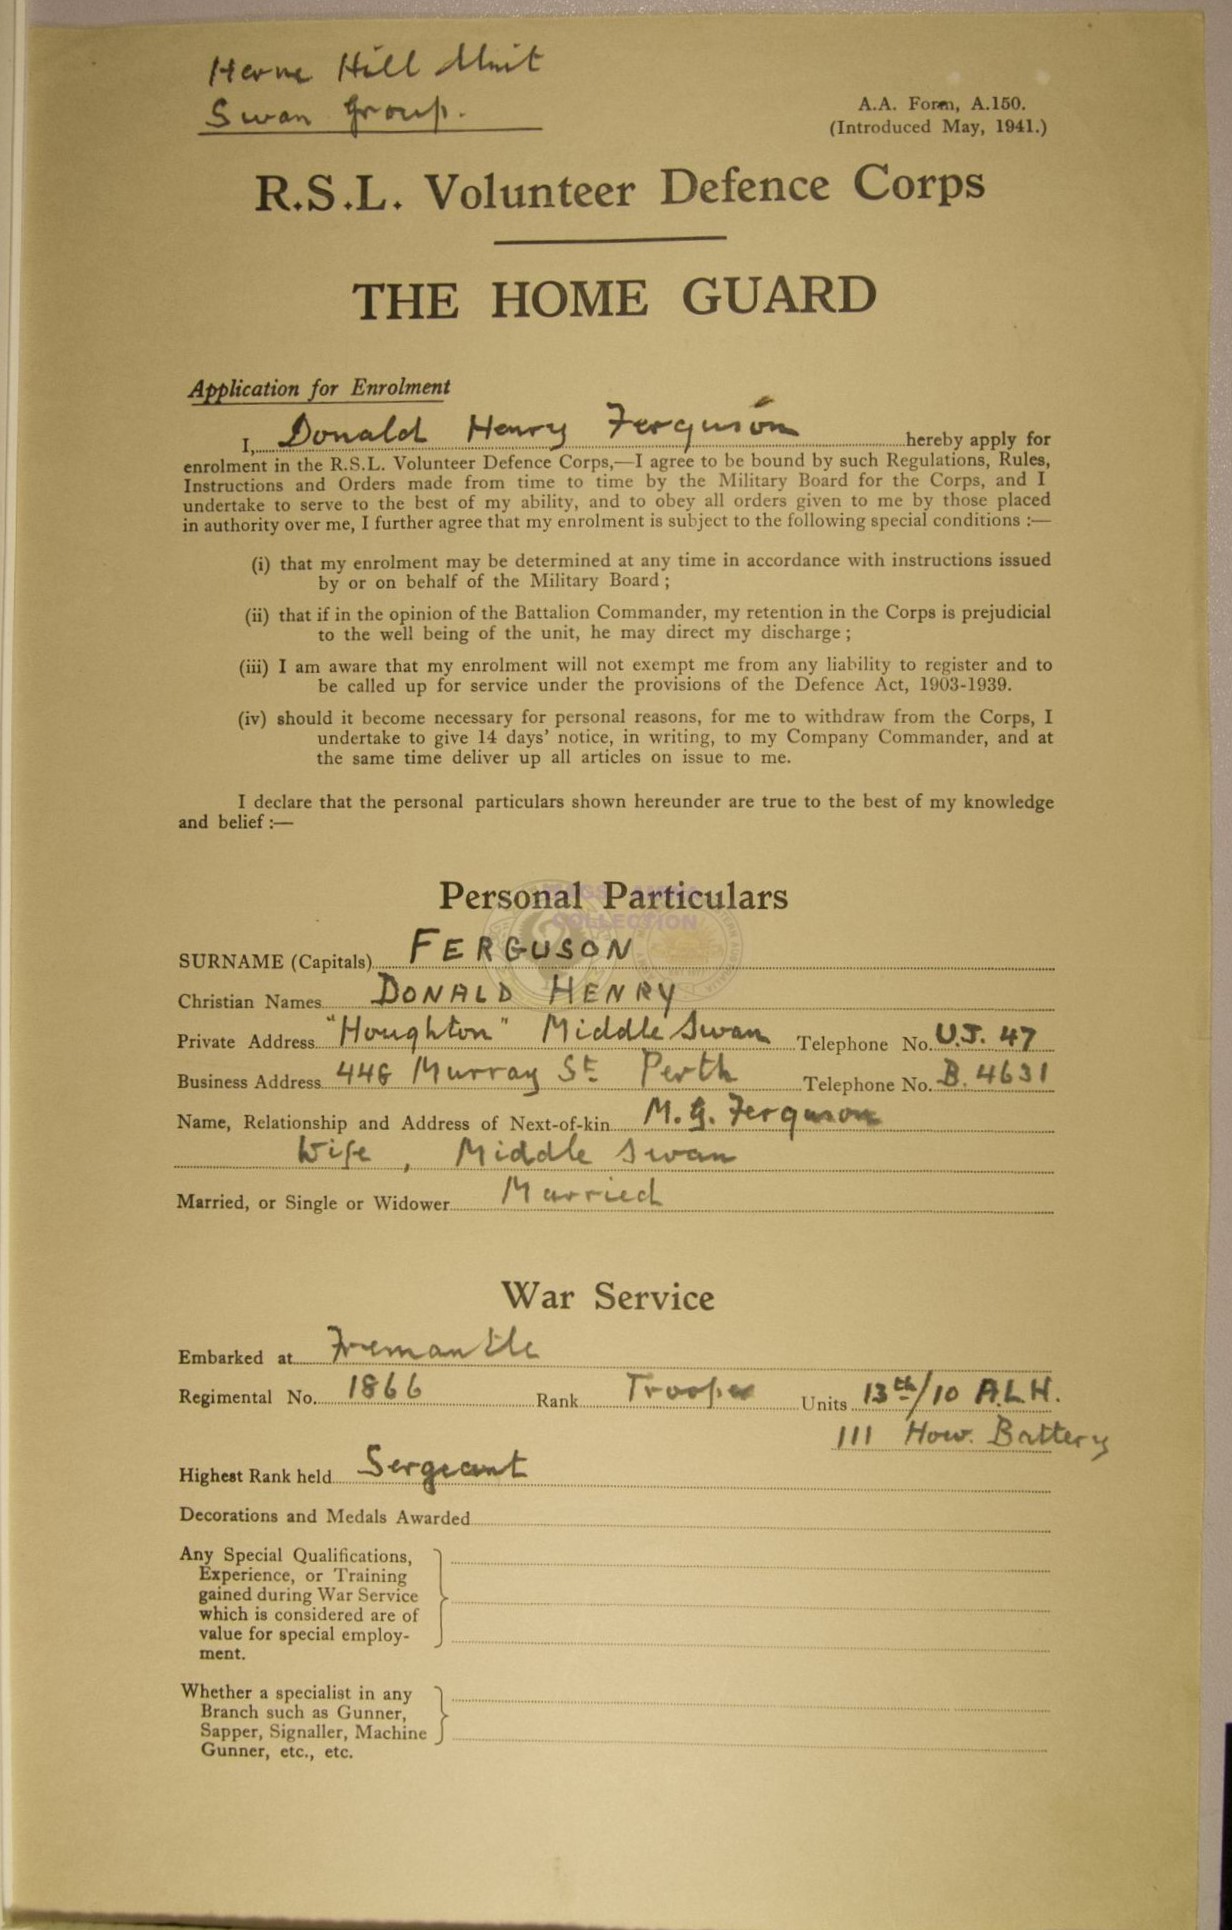 Herne Hill Unit
Swan Group.
A.A. Form, A.150.
(Introduced May, 1941.)
R.S.L. Volunteer Defence Corps
THE HOME GUARD
Application for Enrolment
I, Donald Henry Ferguson hereby apply for
enrolment in the R.S.L. Volunteer Defence Corps,—I agree to be bound by such Regulations, Rules,
Instructions and Orders made from time to time by the Military Board for the Corps, and I
undertake to serve to the best of my ability, and to obey all orders given to me by those placed
in authority over me, I further agree that my enrolment is subject to the following special conditions :—
(i) that my enrolment may be determined at any time in accordance with instructions issued
by or on behalf of the Military Board ;
(ii) that if in the opinion of the Battalion Commander, my retention in the Corps is prejudicial
to the well being of the unit, he may direct my discharge ;
(iii) I am aware that my enrolment will not exempt me from any liability to register and to
be called up for service under the provisions of the Defence Act, 1903-1939.
(iv) should it become necessary for personal reasons, for me to withdraw from the Corps, I
undertake to give 14 days' notice, in writing, to my Company Commander, and at
the same time deliver up all articles on issue to me.
I declare that the personal particulars shown hereunder are true to the best of my knowledge
and belief :—
Personal Particulars
COLLECTION
SURNAME (Capitals) FERGUSON
Christian Names DONALD HENRY
Private Address "Houghton" Middle Swan Telephone No. U.J. 47
Business Address 446 Murray St Perth Telephone No. B. 4631
Name, Relationship and Address of Next-of-kin M. G. Ferguson
Wife, Middle Swan
Married, or Single or Widower Married
War Service
Embarked at Fremantle
Regimental No. 1866 Rank Trooper Units 13th/10 A.L.H.
111 How. Battery
Highest Rank held Sergeant
Decorations and Medals Awarded
Any Special Qualifications,
Experience, or Training
gained during War Service
which is considered are of
value for special employ-
ment.
Whether a specialist in any
Branch such as Gunner,
Sapper, Signaller, Machine
Gunner, etc., etc.